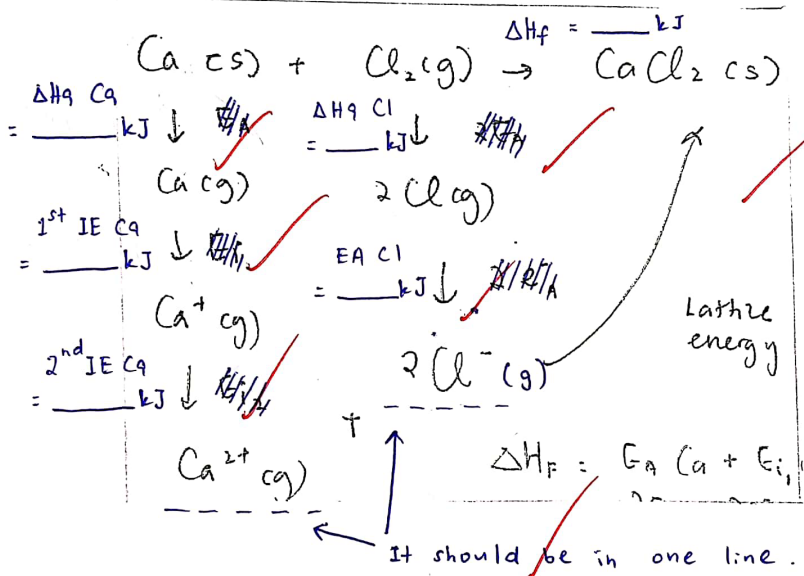 ΔHf = ____ kJ
Ca (s) + Cl₂ (g) → CaCl₂ (s)
ΔHa Ca
= ____ kJ ↓
ΔHa Cl
= ____ kJ ↓
Ca (g)
2Cl (g)
1st IE Ca
= ____ kJ ↓
EA Cl
= ____ kJ ↓
Ca⁺ (g)
Lattice
energy
2nd IE Ca
= ____ kJ ↓
2Cl⁻ (g)
+
Ca²⁺ (g)
ΔHF = EA Ca + Ei,
It should be in one line.